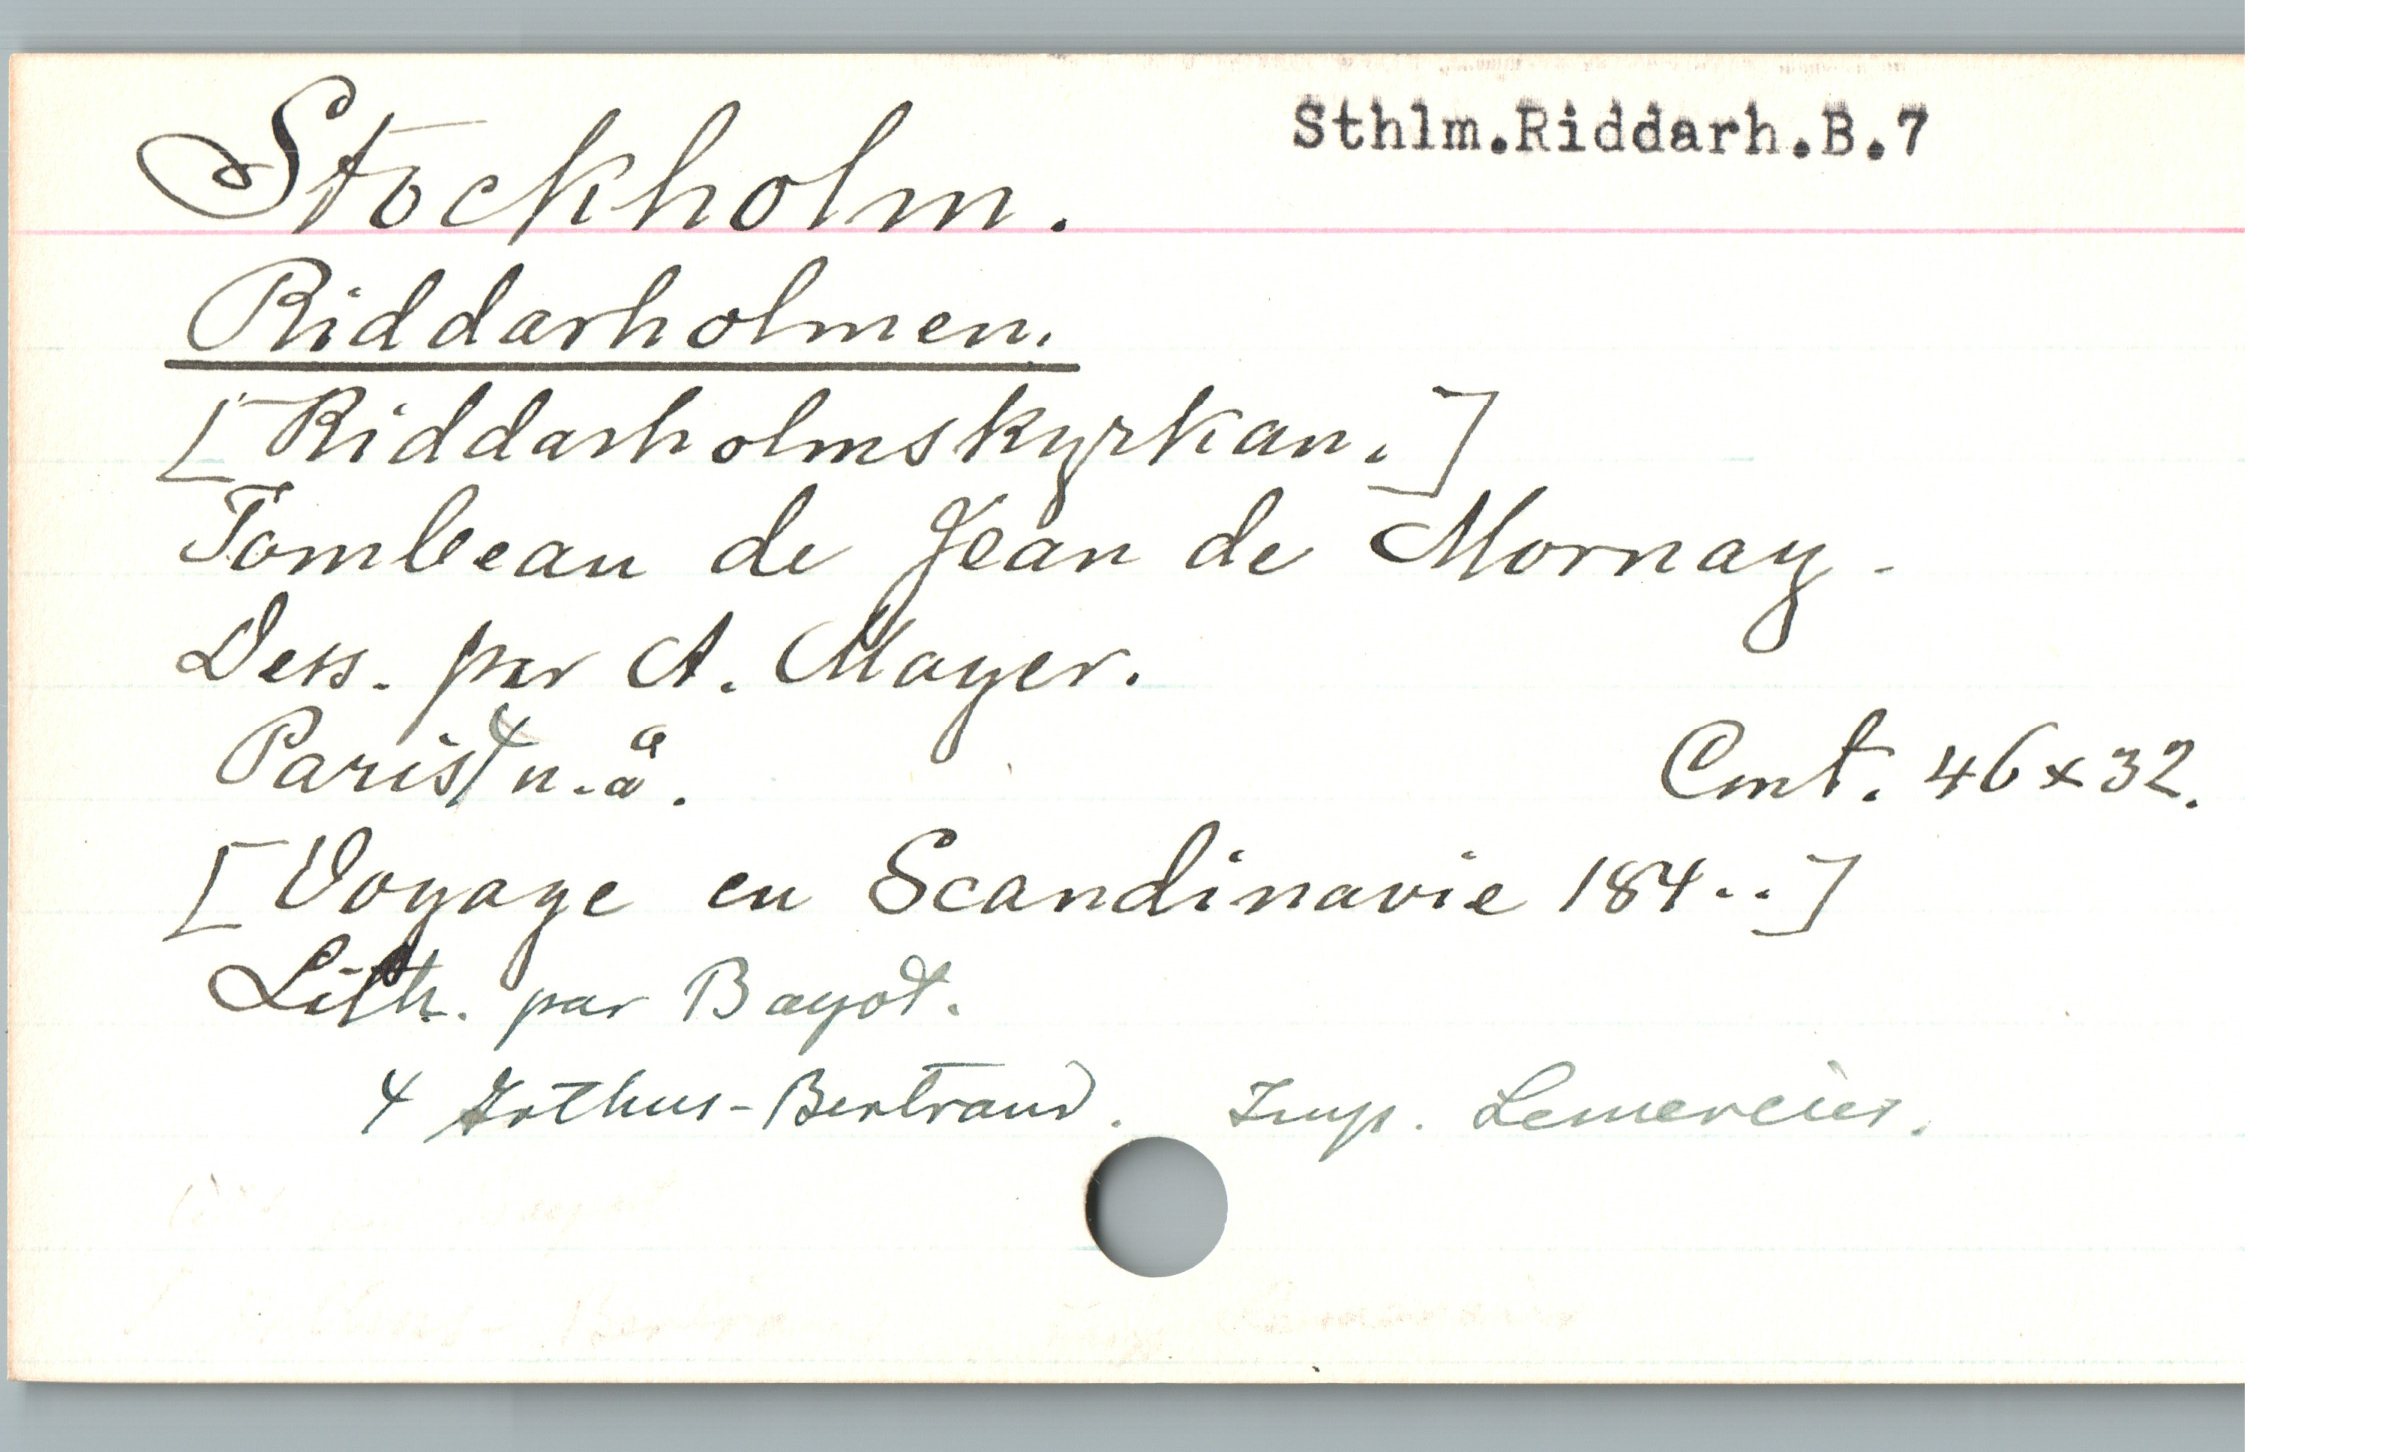 Stockholm.
Sthlm.Riddarh.B.7
Riddarholmen.
[Riddarholmskyrkan.]
Tombeau de Jean de Mornay.
Dess. par A. Mayer.
Paris 4 u. å. Cmt. 46x32.
[Voyage en Scandinavie 184..]
Lith. par Bayot.
4 Arthus-Bertrand. Imp. Lemercier.